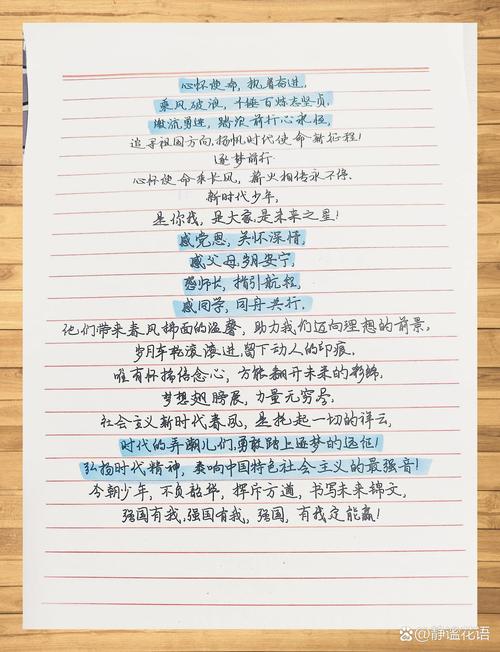 心怀使命，执着奋进，
乘风破浪，千锤百炼志坚贞，
激流勇进，踏浪前行心永恒，
追寻祖国方向，扬帆时代使命新征程！
逐梦前行
心怀使命乘长风，薪火相传永不停．
新时代少年，
是你我，是大家，是未来之星！
感党恩，关怀深情，
感父母，岁月安宁，
感师长，指引航程，
感同学，同舟共行．
他们带来春风拂面的温馨，助力我们迈向理想的前景，
岁月车轮滚滚进，留下动人的印痕，
唯有怀揣信念心，方能翻开未来的彩锦，
梦想翅膀展，力量无穷尽，
社会主义新时代春风，是托起一切的祥云，
时代的弄潮儿们，勇敢踏上逐梦的远征！
弘扬时代精神，奏响中国特色社会主义的最强音！
今朝少年，不负韶华，挥斥方遒，书写未来锦文，
强国有我，强国有我，强国，有我定能赢！
静谧花语